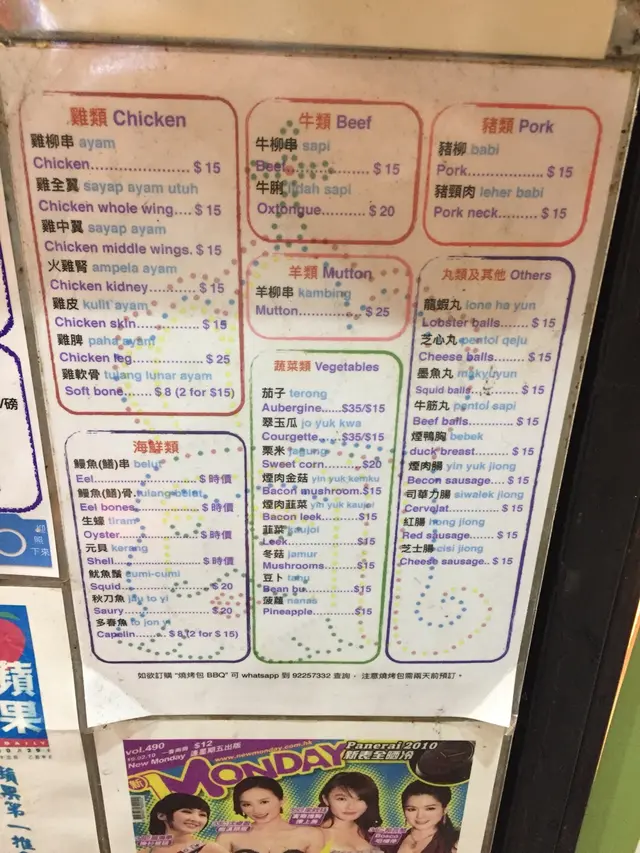 雞類 Chicken
雞柳串 ayam
Chicken................... $ 15
雞全翼 sayap ayam utuh
Chicken whole wing.... $ 15
雞中翼 sayap ayam
Chicken middle wings. $ 15
火雞腎 ampela ayam
Chicken kidney........... $ 15
雞皮 kulit ayam
Chicken skin............. $ 15
雞脾 paha ayam
Chicken leg.............. $ 25
雞軟骨 tulang lunar ayam
Soft bone...... $ 8 (2 for $15)
海鮮類
鰻魚(鱔)串 belut
Eel........................ $ 時價
鰻魚(鱔)骨 tulang belut
Eel bones................ $ 時價
生蠔 tiram
Oyster.................... $ 時價
元貝 kerang
Shell...................... $ 時價
魷魚鬚 cumi-cumi
Squid..................... $ 20
秋刀魚 jau to yi
Saury..................... $ 20
多春魚 to jon yi
Capelin........ $ 8 (2 for $ 15)
牛類 Beef
牛柳串 sapi
Beef....................... $ 15
牛脷 lidah sapi
Oxtongue............. $ 20
羊類 Mutton
羊柳串 kambing
Mutton................ $ 25
蔬菜類 Vegetables
茄子 terong
Aubergine.....$35/$15
翠玉瓜 jo yuk kwa
Courgette.....$35/$15
栗米 jagung
Sweet corn...........$20
煙肉金菇 yin yuk kemku
Bacon mushroom.$15
煙肉韮菜 yin yuk kaujoi
Bacon leek...........$15
韮菜 kaujoi
Leek.....................$15
冬菇 jamur
Mushrooms..........$15
豆卜 tahu
Bean bu................$15
菠蘿 nanas
Pineapple..............$15
豬類 Pork
豬柳 babi
Pork..................... $ 15
豬頸肉 leher babi
Pork neck.......... $ 15
丸類及其他 Others
龍蝦丸 lone ha yun
Lobster balls....... $ 15
芝心丸 pentol qeju
Cheese balls....... $ 15
墨魚丸 makyuyun
Squid balls........... $ 15
牛筋丸 pentol sapi
Beef balls............ $ 15
煙鴨胸 bebek
duck breast......... $ 15
煙肉腸 yin yuk jiong
Becon sausage.... $ 15
司華力腸 siwalek jiong
Cervelat............... $ 15
紅腸 hong jiong
Red sausage....... $ 15
芝士腸 cisi jiong
Cheese sausage.. $ 15
如欲訂購 “燒烤包 BBQ” 可 whatsapp 到 92257332 查詢， 注意燒烤包需兩天前預訂。
/磅
下來
蘋
果
蘋果第一推
vol.490
$12
逢星期五出版
New Monday
www.newmonday.com.hk
新 MONDAY
Panerai 2010
新表全晒冷